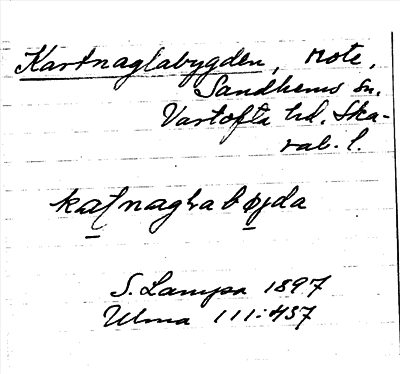 Kartnaglabygden, rote,
Sandhems sn.
Vartofta hd. Ska-
rab. l.
S. Lampa 1897
Ulma 111:437